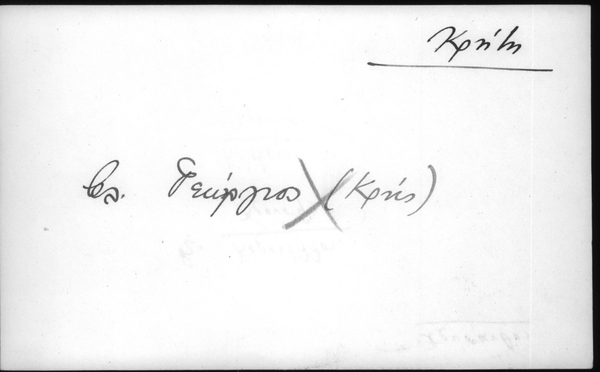 Κρήτη
βλ. Γεώργιος (Κρής)